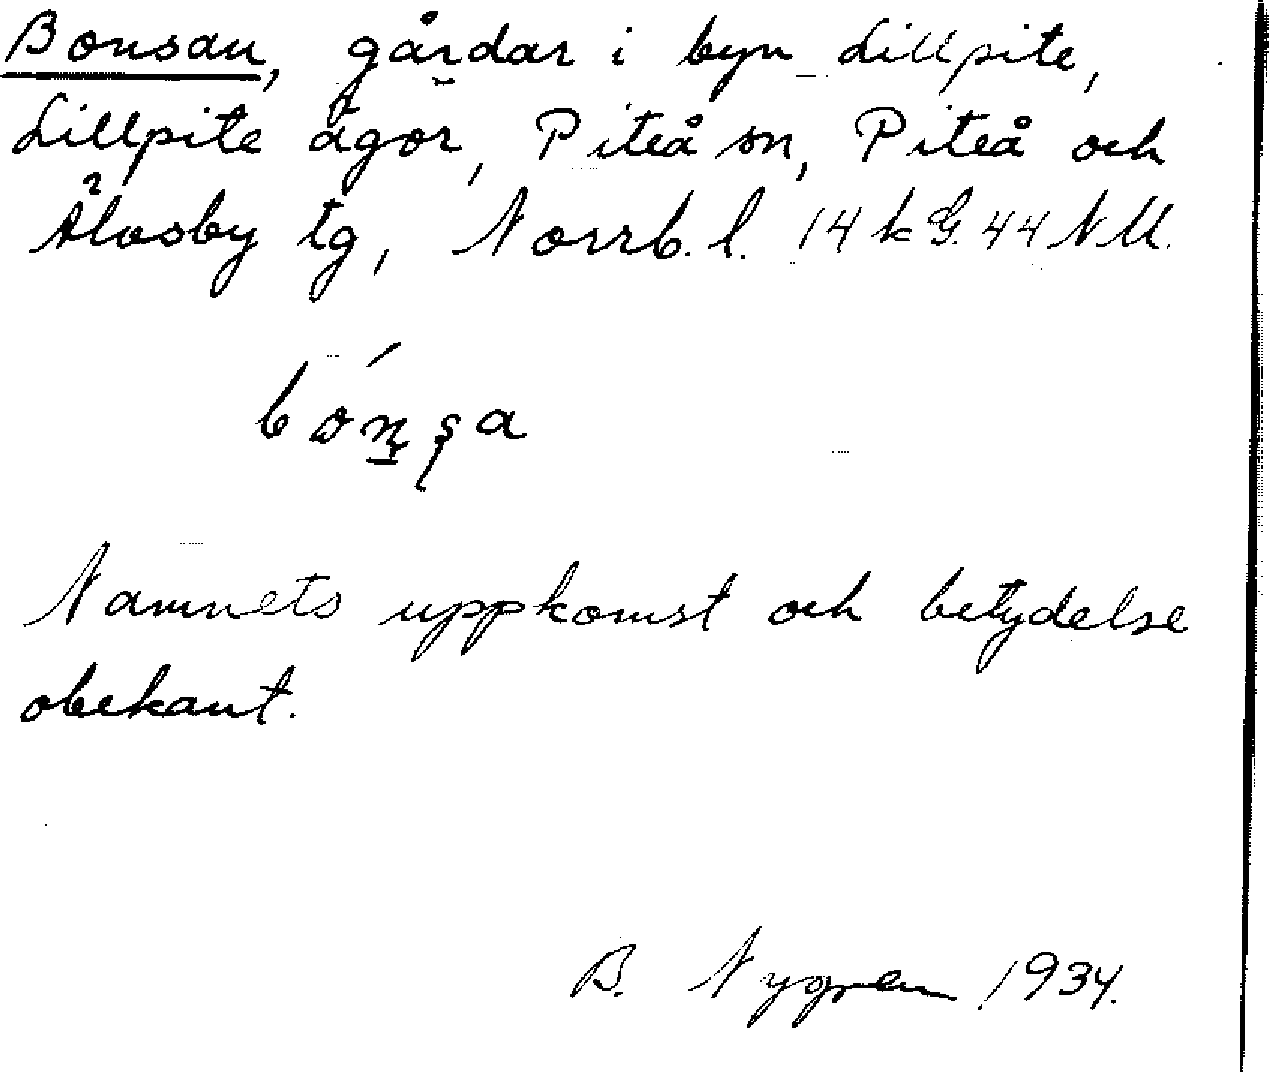 Bonsan, gårdar i byn Lillpite,
Lillpite ägor, Piteå sn, Piteå och
Älvsby tg, Norrb. l. 14 k G. 44 NM.
Namnets uppkomst och betydelse
obekant.
B. Nygren 1934.